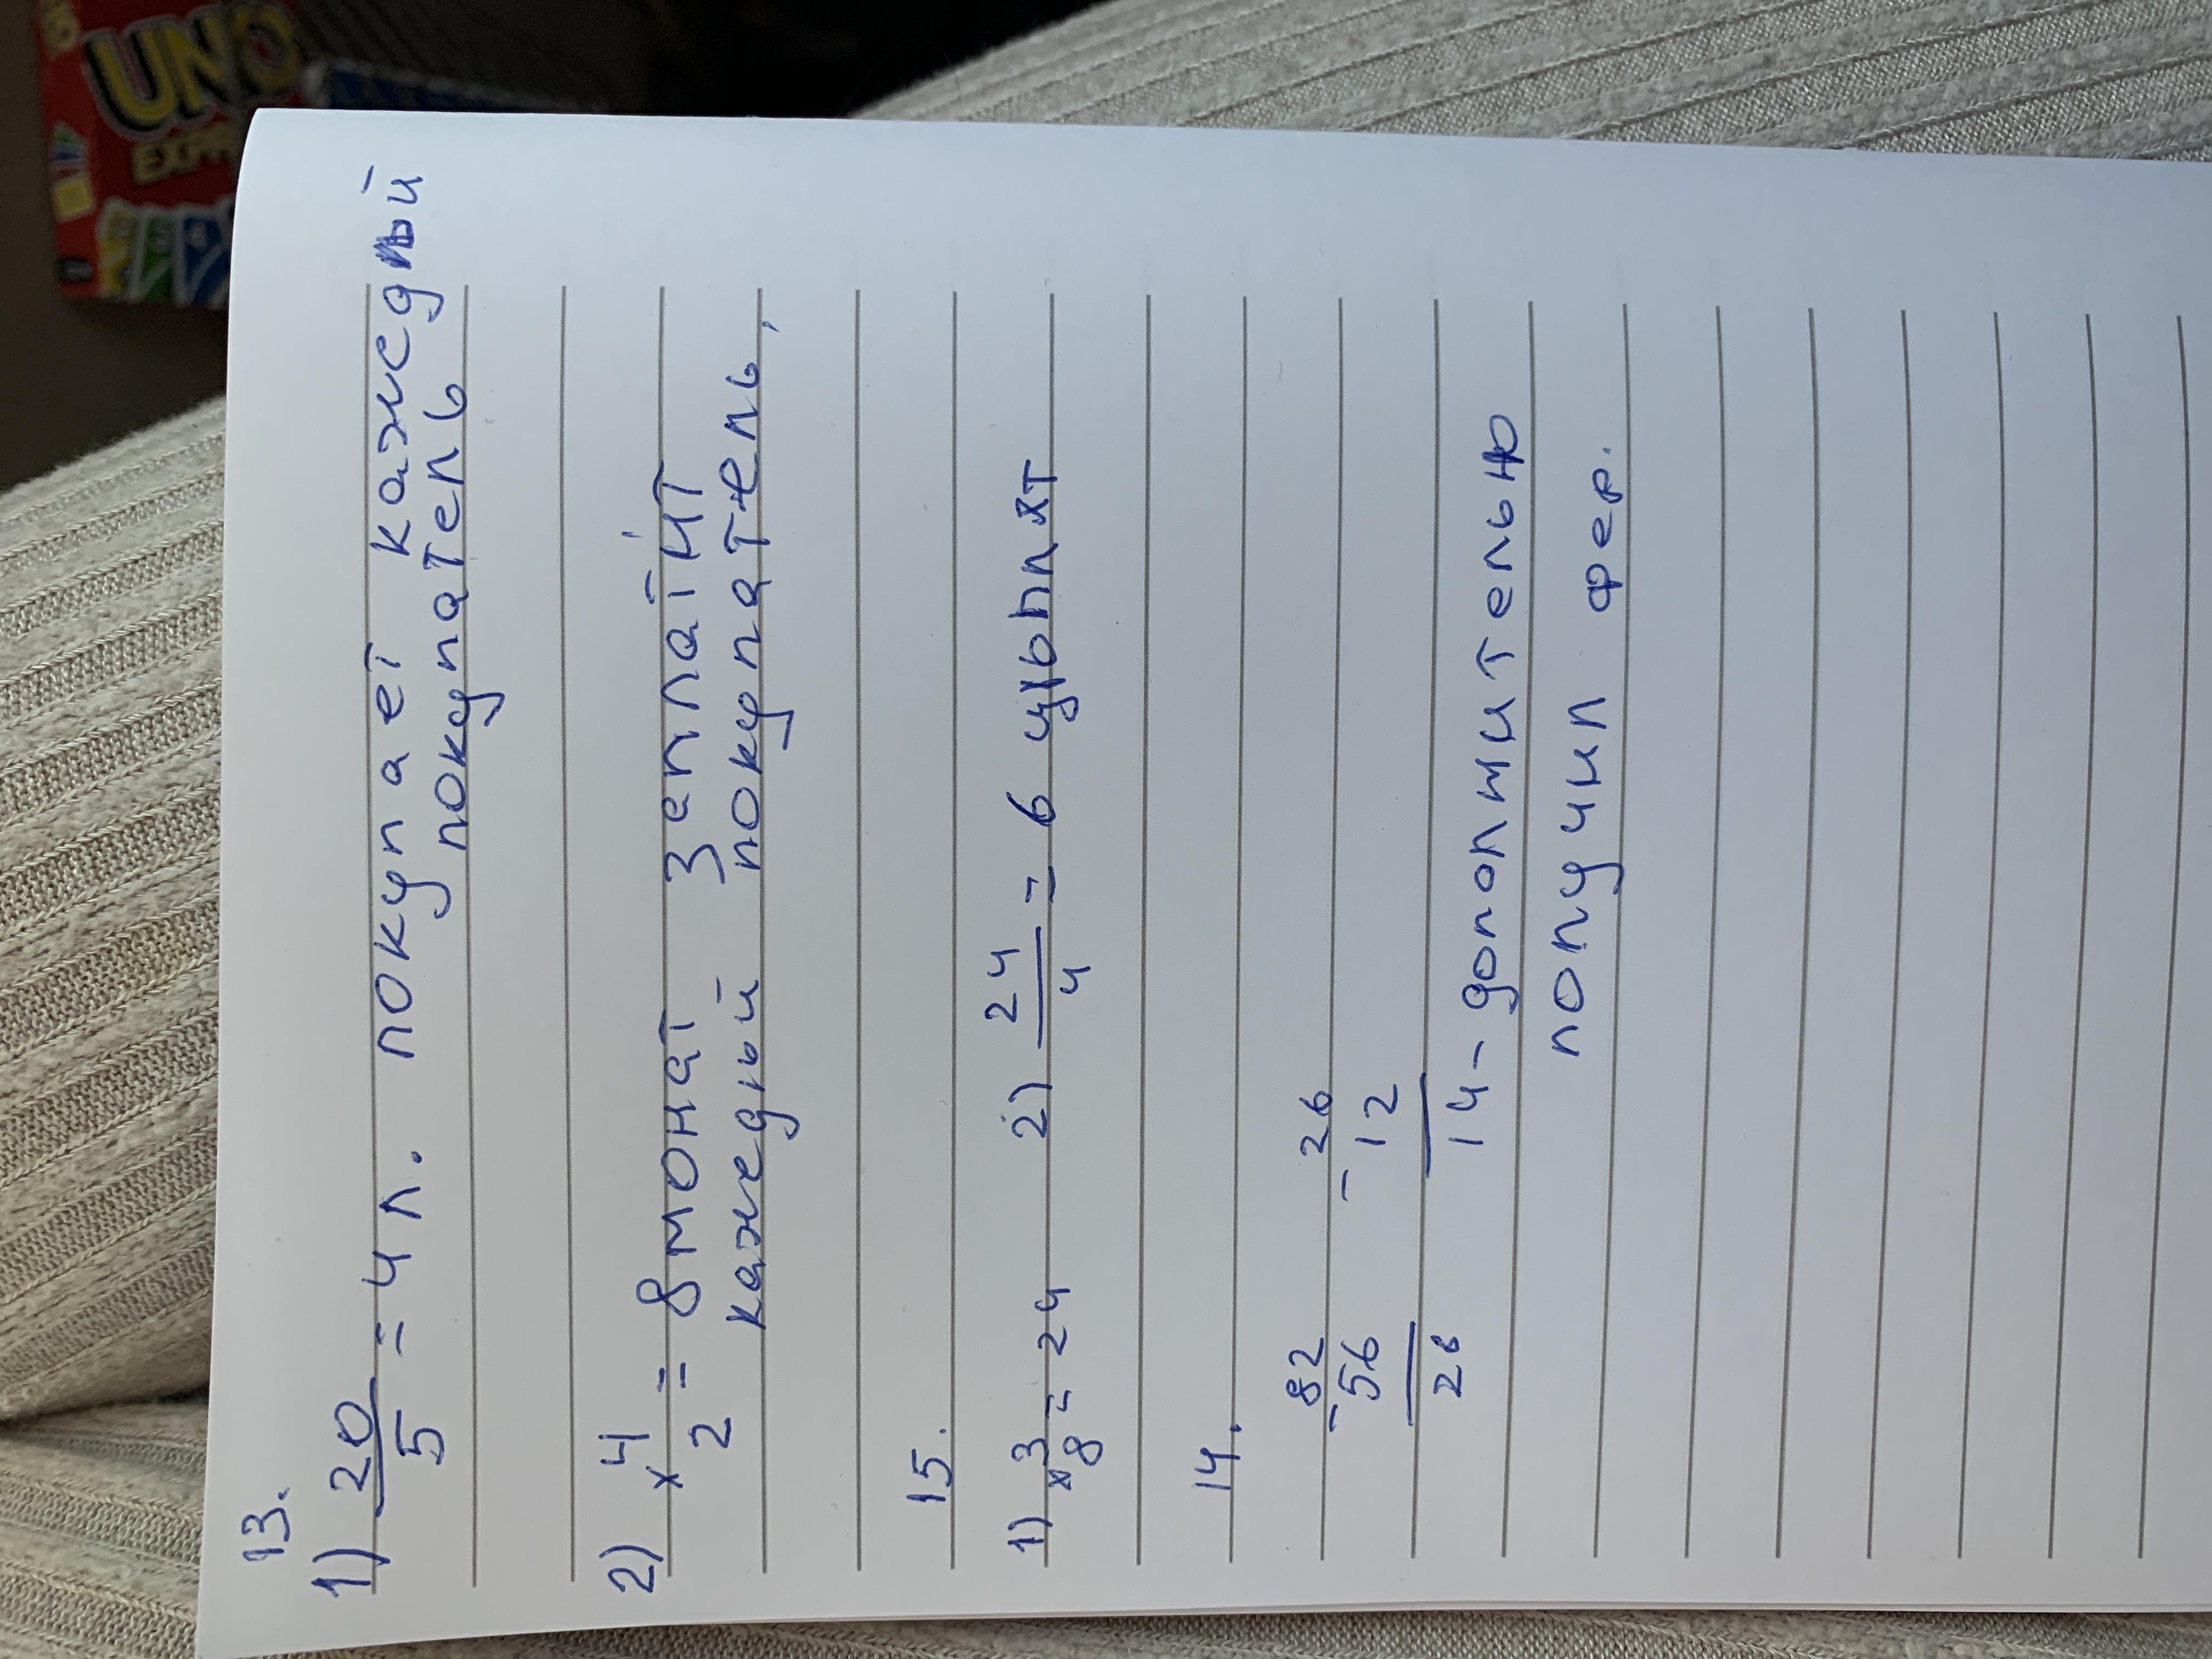 13.
1) 20/5 = 4 л. покупает каждый
покупатель
2) × 4
2 = 8 монат заплатит
каждый покупатель,
15.
1) × 3
8 = 24 2) 24/4 = 6 цыплят
14.
82 26
- 56 - 12
26 14 - дополнительно
получил фер.
UNO